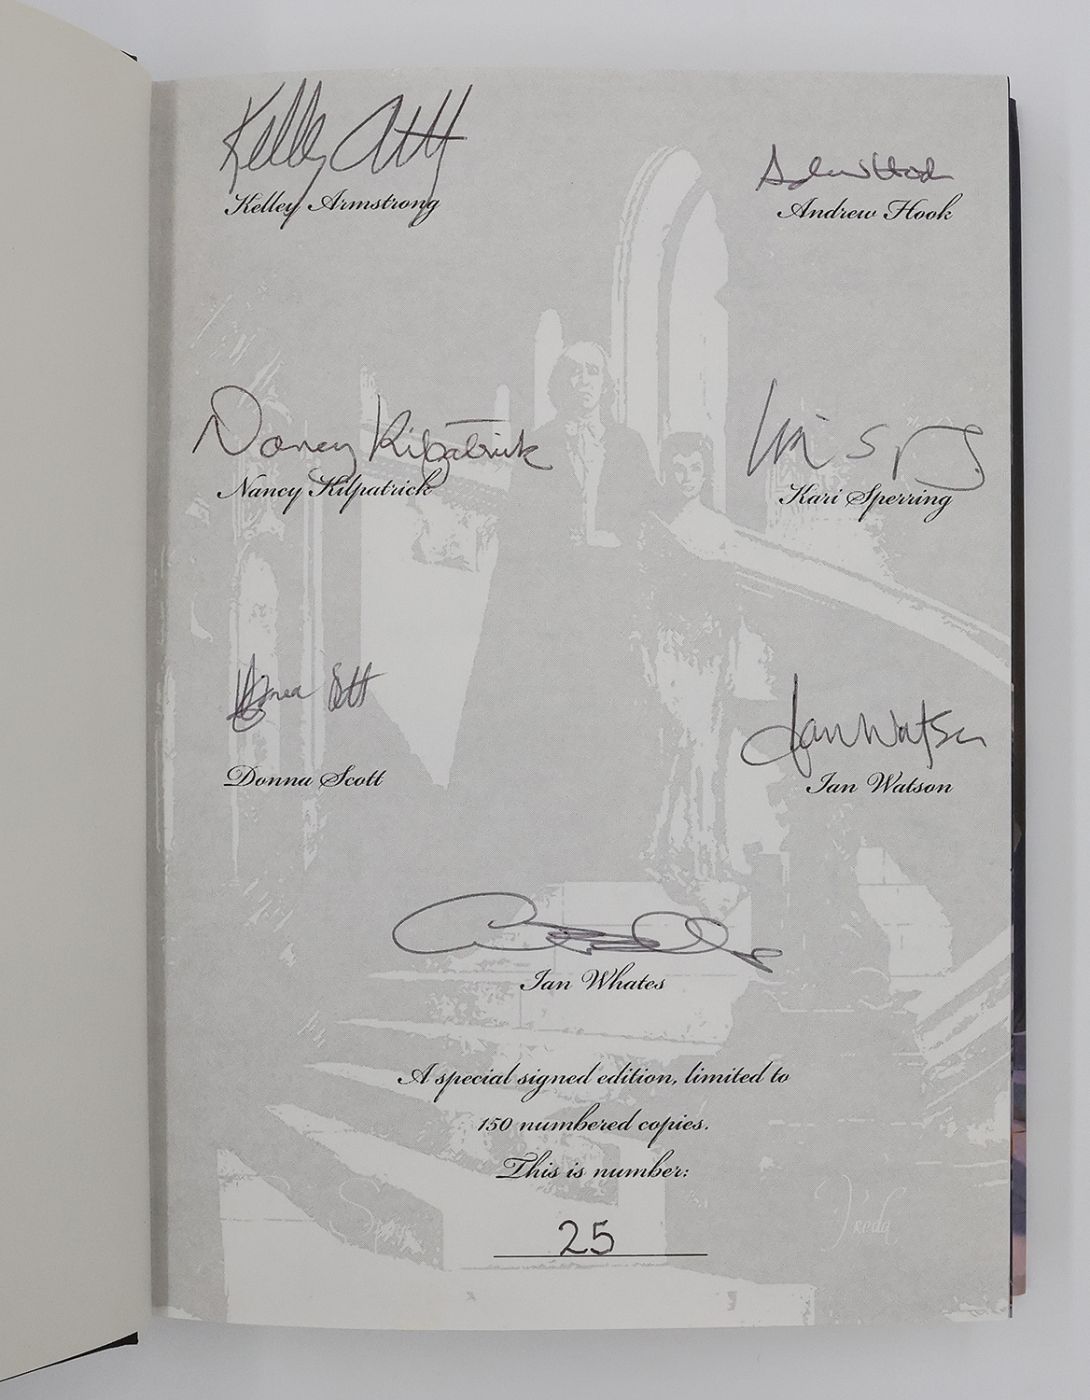 Kelley Armstrong
Andrew Hook
Nancy Kilpatrick
Nancy Kilpatrick
Kari Sperring
Donna Scott
Ian Watson
Ian Watson
Ian Whates
A special signed edition, limited to
150 numbered copies.
This is number:
25